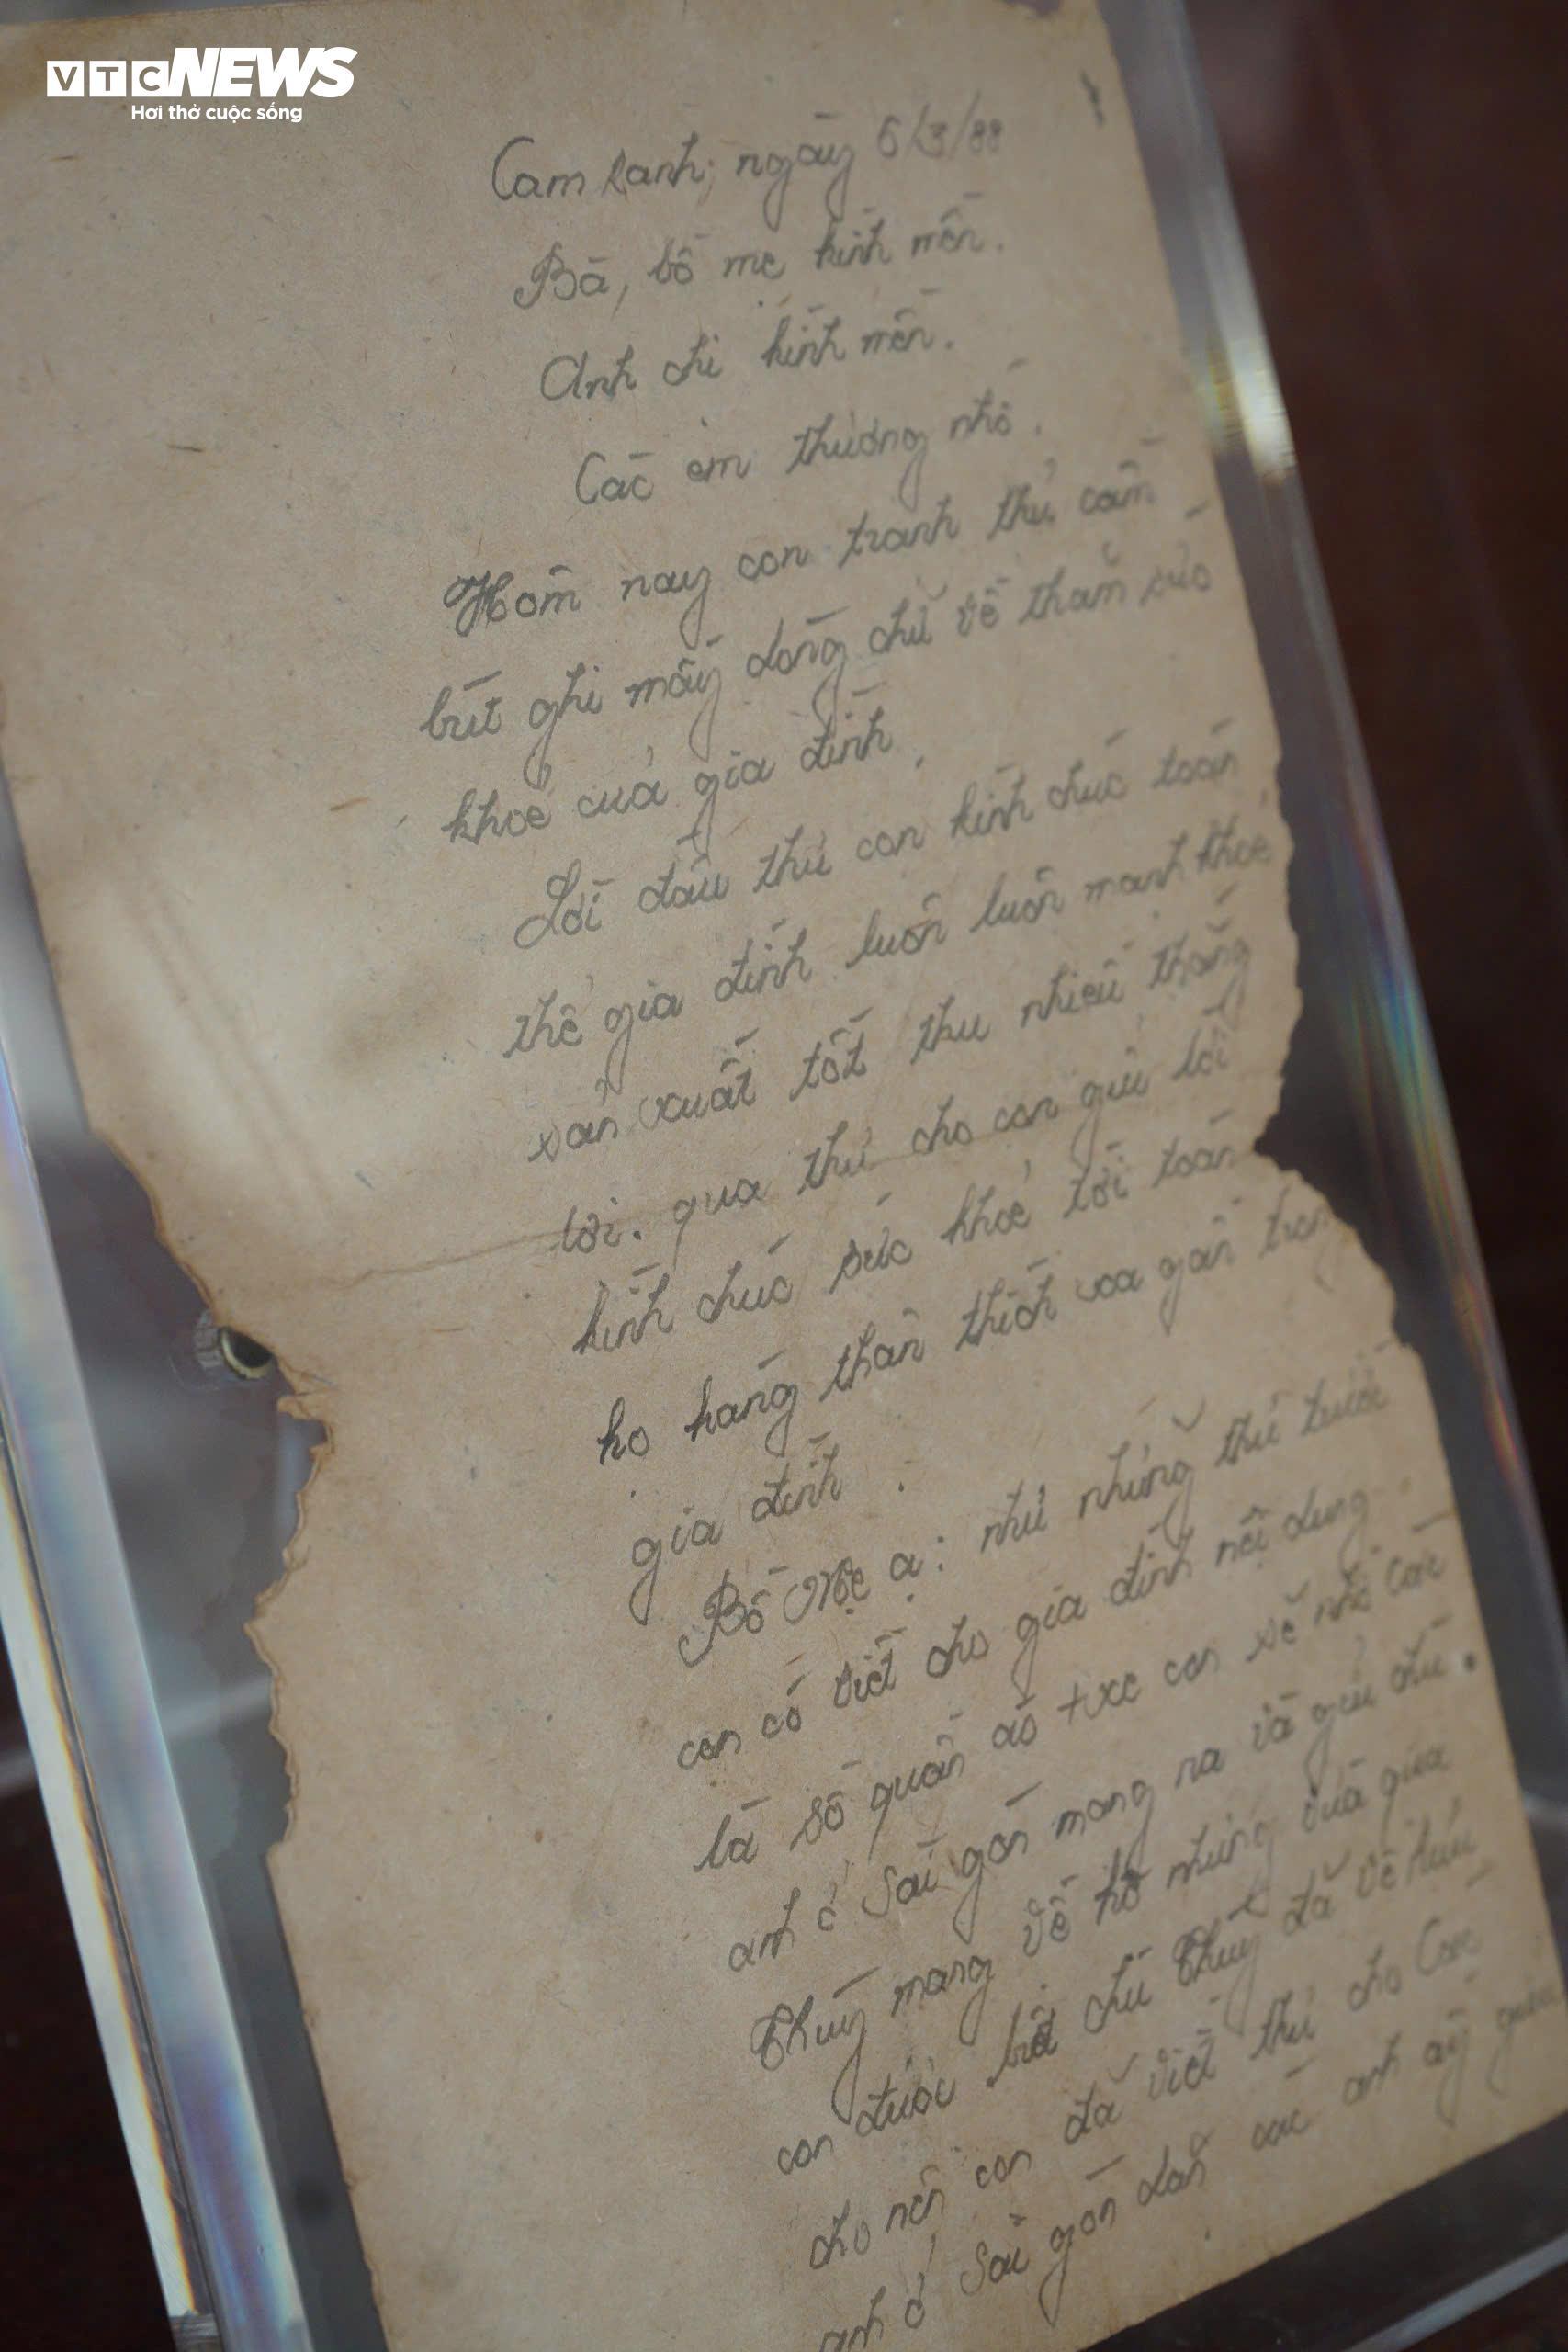 VTC NEWS
Hơi thở cuộc sống
Cam Ranh, ngày 6/3/88
Bà, bố mẹ kính mến.
Anh chị kính mến.
Các em thương nhớ.
Hôm nay con tranh thủ cầm
bút ghi mấy dòng chữ về thăm sức
khoẻ của gia đình.
Lời đầu thư con kính chúc toàn
thể gia đình luôn luôn mạnh khoẻ
sản xuất tốt thu nhiều thắng
lợi. qua thư cho con gửi lời
kính chúc sức khoẻ tới toàn
họ hàng thân thích xa gần trong
gia đình.
Bố Mẹ ạ: như những thư trước
con có viết cho gia đình nội dung
là số quần áo + xe con sẽ nhờ các
anh ở Sài gòn mang ra và gửi chú
Thuý mang về hộ nhưng vừa qua
con được biết chú Thuý đã về
cho nên con đã viết thư cho Các
anh ở Sài gòn dặn các anh ấy